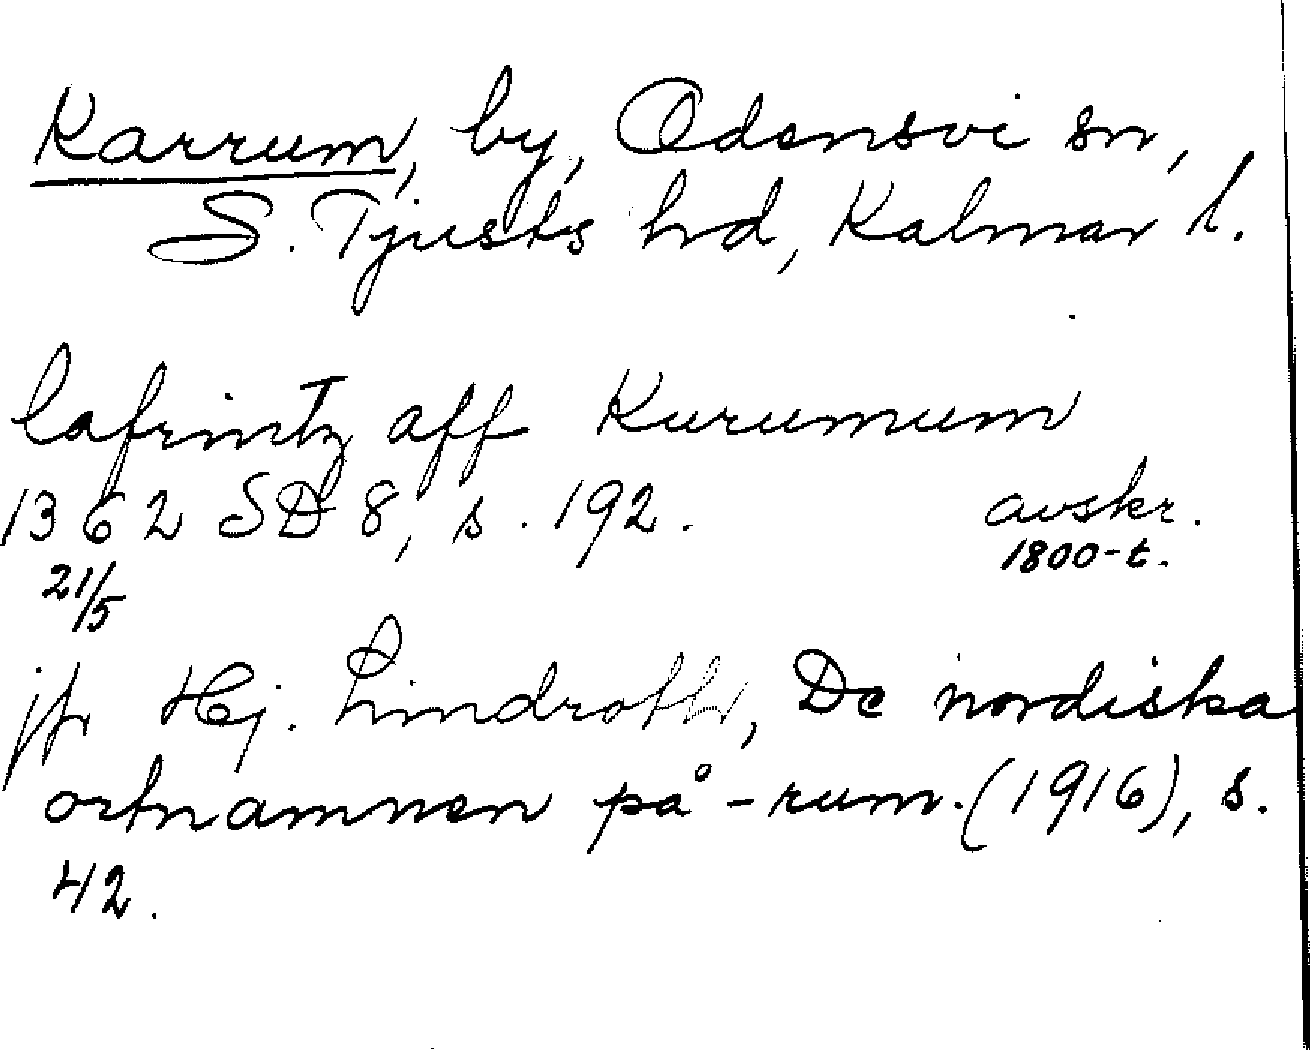 Karrum, by, Odensvi sn,
S. Tjusts hd, Kalmar l.
lafrintz aff Kurumum
1362 SD 8, s. 192. avskr.
21/5 1800-t.
jfr Hj. Lindroth, De nordiska
ortnamnen på -rum. (1916), s.
42.